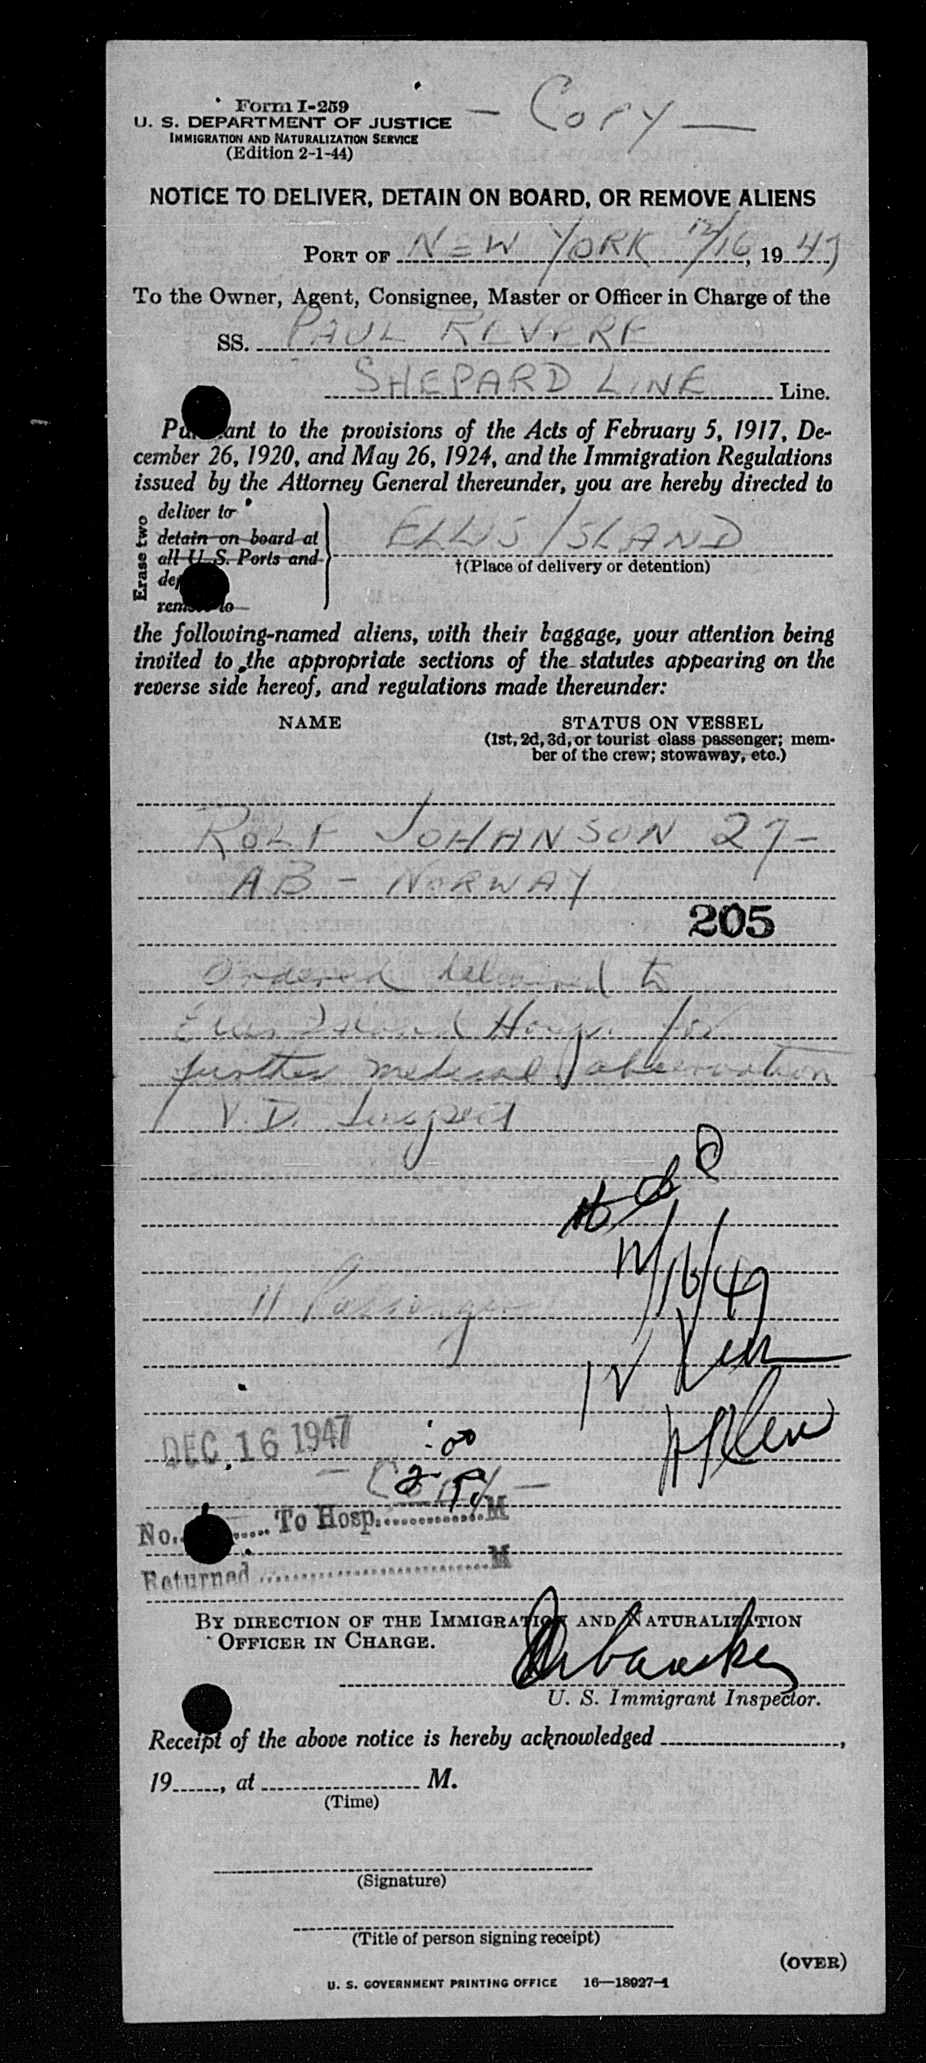 Form I-259
U. S. DEPARTMENT OF JUSTICE
IMMIGRATION AND NATURALIZATION SERVICE
(Edition 2-1-44)
— Copy —
NOTICE TO DELIVER, DETAIN ON BOARD, OR REMOVE ALIENS
PORT OF NEW YORK 12/16, 1947
To the Owner, Agent, Consignee, Master or Officer in Charge of the
SS. PAUL REVERE
SHEPARD LINE Line.
Pursuant to the provisions of the Acts of February 5, 1917, De-
cember 26, 1920, and May 26, 1924, and the Immigration Regulations
issued by the Attorney General thereunder, you are hereby directed to
Erase two
deliver to
detain on board at
all U. S. Ports and
remove to
ELLIS ISLAND
†(Place of delivery or detention)
the following-named aliens, with their baggage, your attention being
invited to the appropriate sections of the statutes appearing on the
reverse side hereof, and regulations made thereunder:
NAME STATUS ON VESSEL
(1st, 2d, 3d, or tourist class passenger; mem-
ber of the crew; stowaway, etc.)
ROLF JOHANSON 27-
AB - NORWAY
205
Ordered delivered to
Ellis Island Hosp. for
further medical observation
V.D. Suspect
12/16/47
11 Passenger
DEC. 16 1947
2:00
— Copy —
No. To Hosp. P. M
Returned M
BY DIRECTION OF THE IMMIGRATION AND NATURALIZATION
OFFICER IN CHARGE.
U. S. Immigrant Inspector.
Receipt of the above notice is hereby acknowledged ,
19 , at M.
(Time)
(Signature)
(Title of person signing receipt)
(OVER)
U. S. GOVERNMENT PRINTING OFFICE 16—18927-1